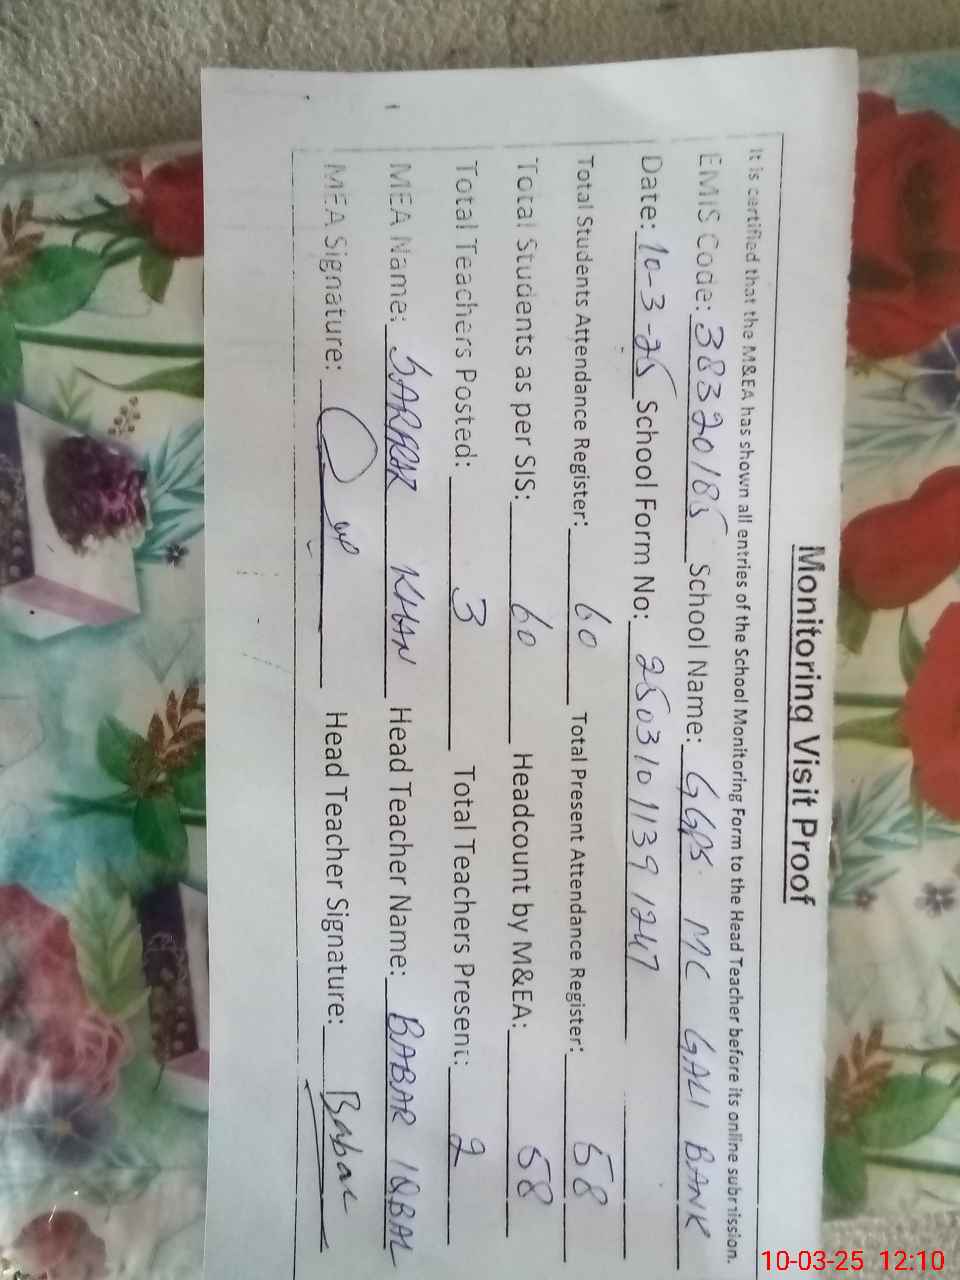 Monitoring Visit Proof
It is certified that the M&EA has shown all entries of the School Monitoring Form to the Head Teacher before its online submission.
EMIS Code: 38320185 School Name: GGPS MC GALI BANK
Date: 10-3-25 School Form No: 2503101139 1247
Total Students Attendance Register: 60 Total Present Attendance Register: 58
Total Students as per SIS: 60 Headcount by M&EA: 58
Total Teachers Posted: 3 Total Teachers Present: 2
MEA Name: KHAN Head Teacher Name: BABAR IQBAL
MEA Signature: Head Teacher Signature: Babar
10-03-25 12:10